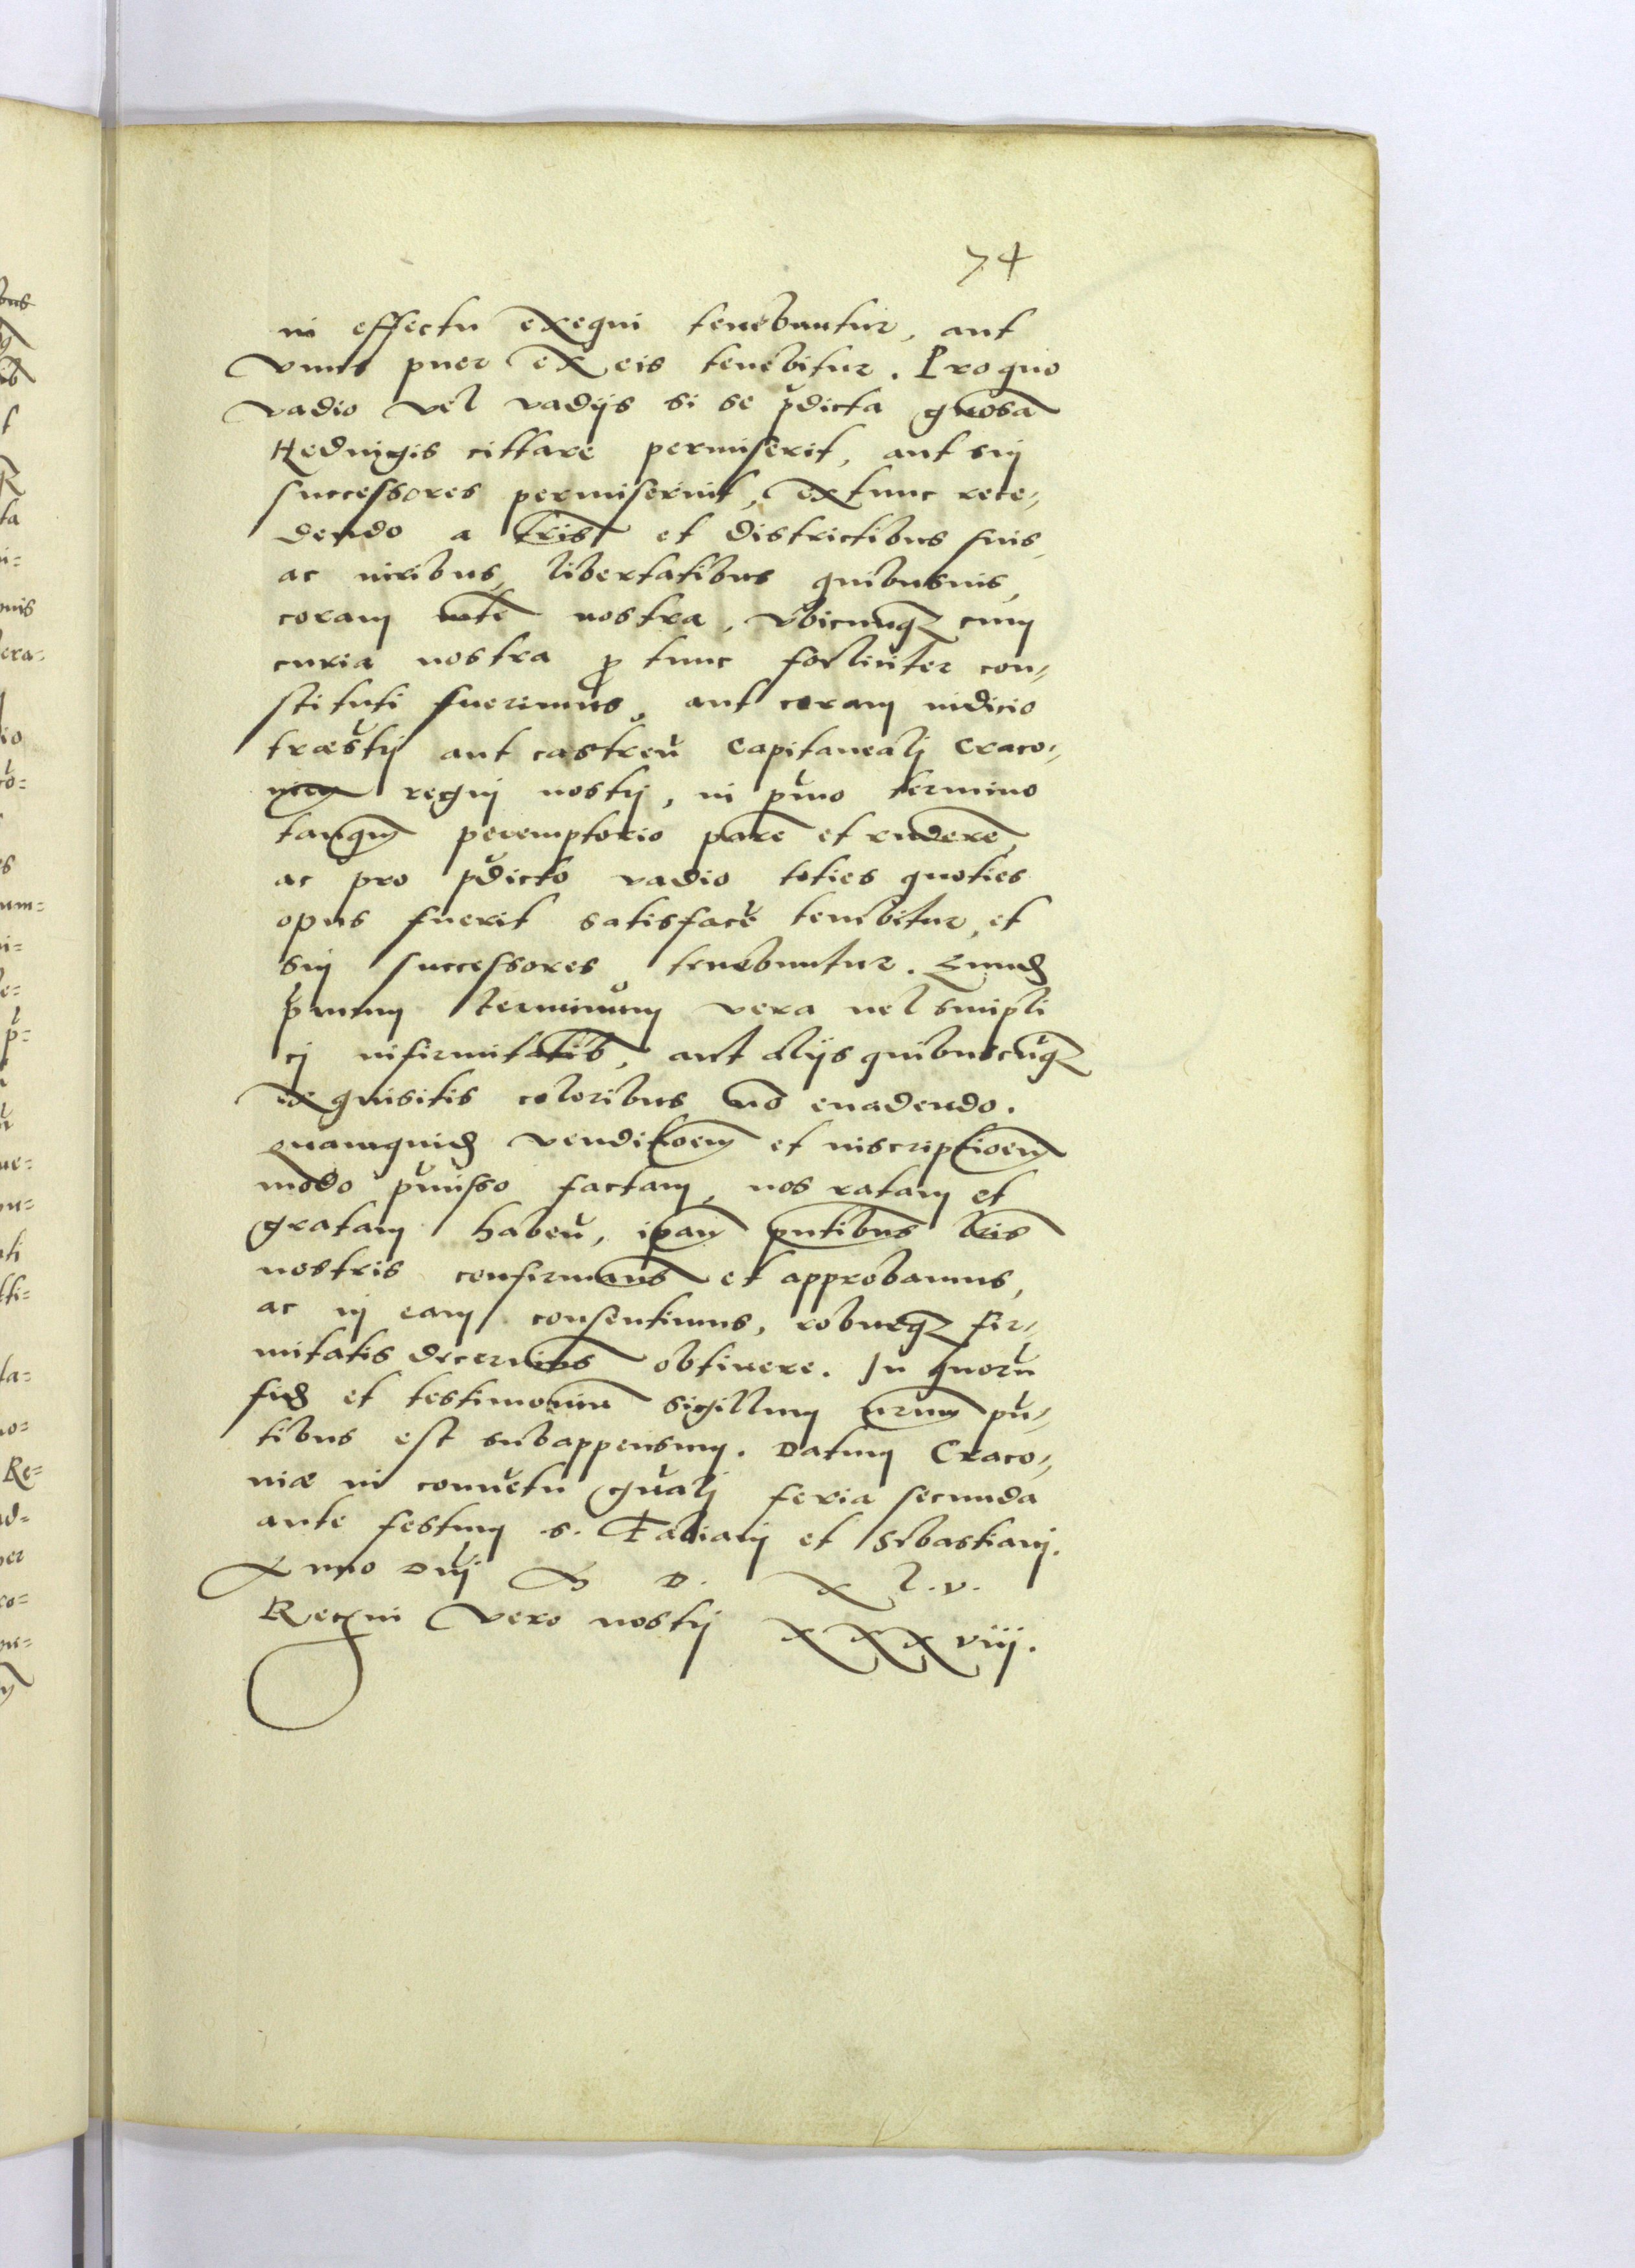 74
in effectu exequi tenebuntur, aut
vnus puer ex eis tenebitur. Pro quo
vadio vel vadijs si se pdicta gnosa
Hedvigis cittare permiserit, aut sui
successores permiserint, extunc rece-
dendo a tris et districtibus suis,
ac iuribus, libertatibus quibusuis,
coram mte nostra, vbicunqz cum
curia nostra p tunc foeliciter con-
stituti fuerimus, aut coram iudicio
træstri aut castren capitaneali Craco-
nien regni nostri, in pmo termino
tanqm peremptorio pare et rndere,
ac pro pdicto vadio toties quoties
opus fuerit satisface tenebitur, et
sui successores tenebuntur. Eund
pmum terminum vera vel simpli
ci infirmitatib, aut alijs quibuscuqz
exquisitis coloribus no euadendo.
Quamquid venditioem et inscriptioem
modo pmisso factam, nos ratam et
gratam haben, ipam pntibus lris
nostris confirmans et approbamus,
ac in eam consentimus, roburqz fir-
mitatis decernims obtinere. In quoru
fid et testimonium sigillum nrum pn-
tibus est subappensum. Datum Craco-
niæ in conuetu gnali feria secunda
ante festum s. Fabiani et Sebastiani.
Anno Dni M D. X L.V.
Regni vero nostri XXXviij.